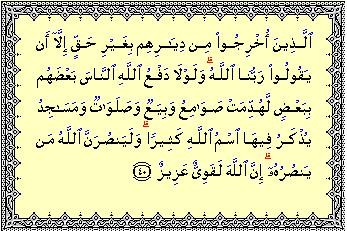 ٱلَّذِينَ أُخْرِجُوا۟ مِن دِيَـٰرِهِم بِغَيْرِ حَقٍّ إِلَّآ أَن
يَقُولُوا۟ رَبُّنَا ٱللَّهُ ۗ وَلَوْلَا دَفْعُ ٱللَّهِ ٱلنَّاسَ بَعْضَهُم
بِبَعْضٍ لَّهُدِّمَتْ صَوَٰمِعُ وَبِيَعٌ وَصَلَوَٰتٌ وَمَسَـٰجِدُ
يُذْكَرُ فِيهَا ٱسْمُ ٱللَّهِ كَثِيرًا ۗ وَلَيَنصُرَنَّ ٱللَّهُ مَن
يَنصُرُهُۥٓ ۗ إِنَّ ٱللَّهَ لَقَوِىٌّ عَزِيزٌ ﴿٤٠﴾